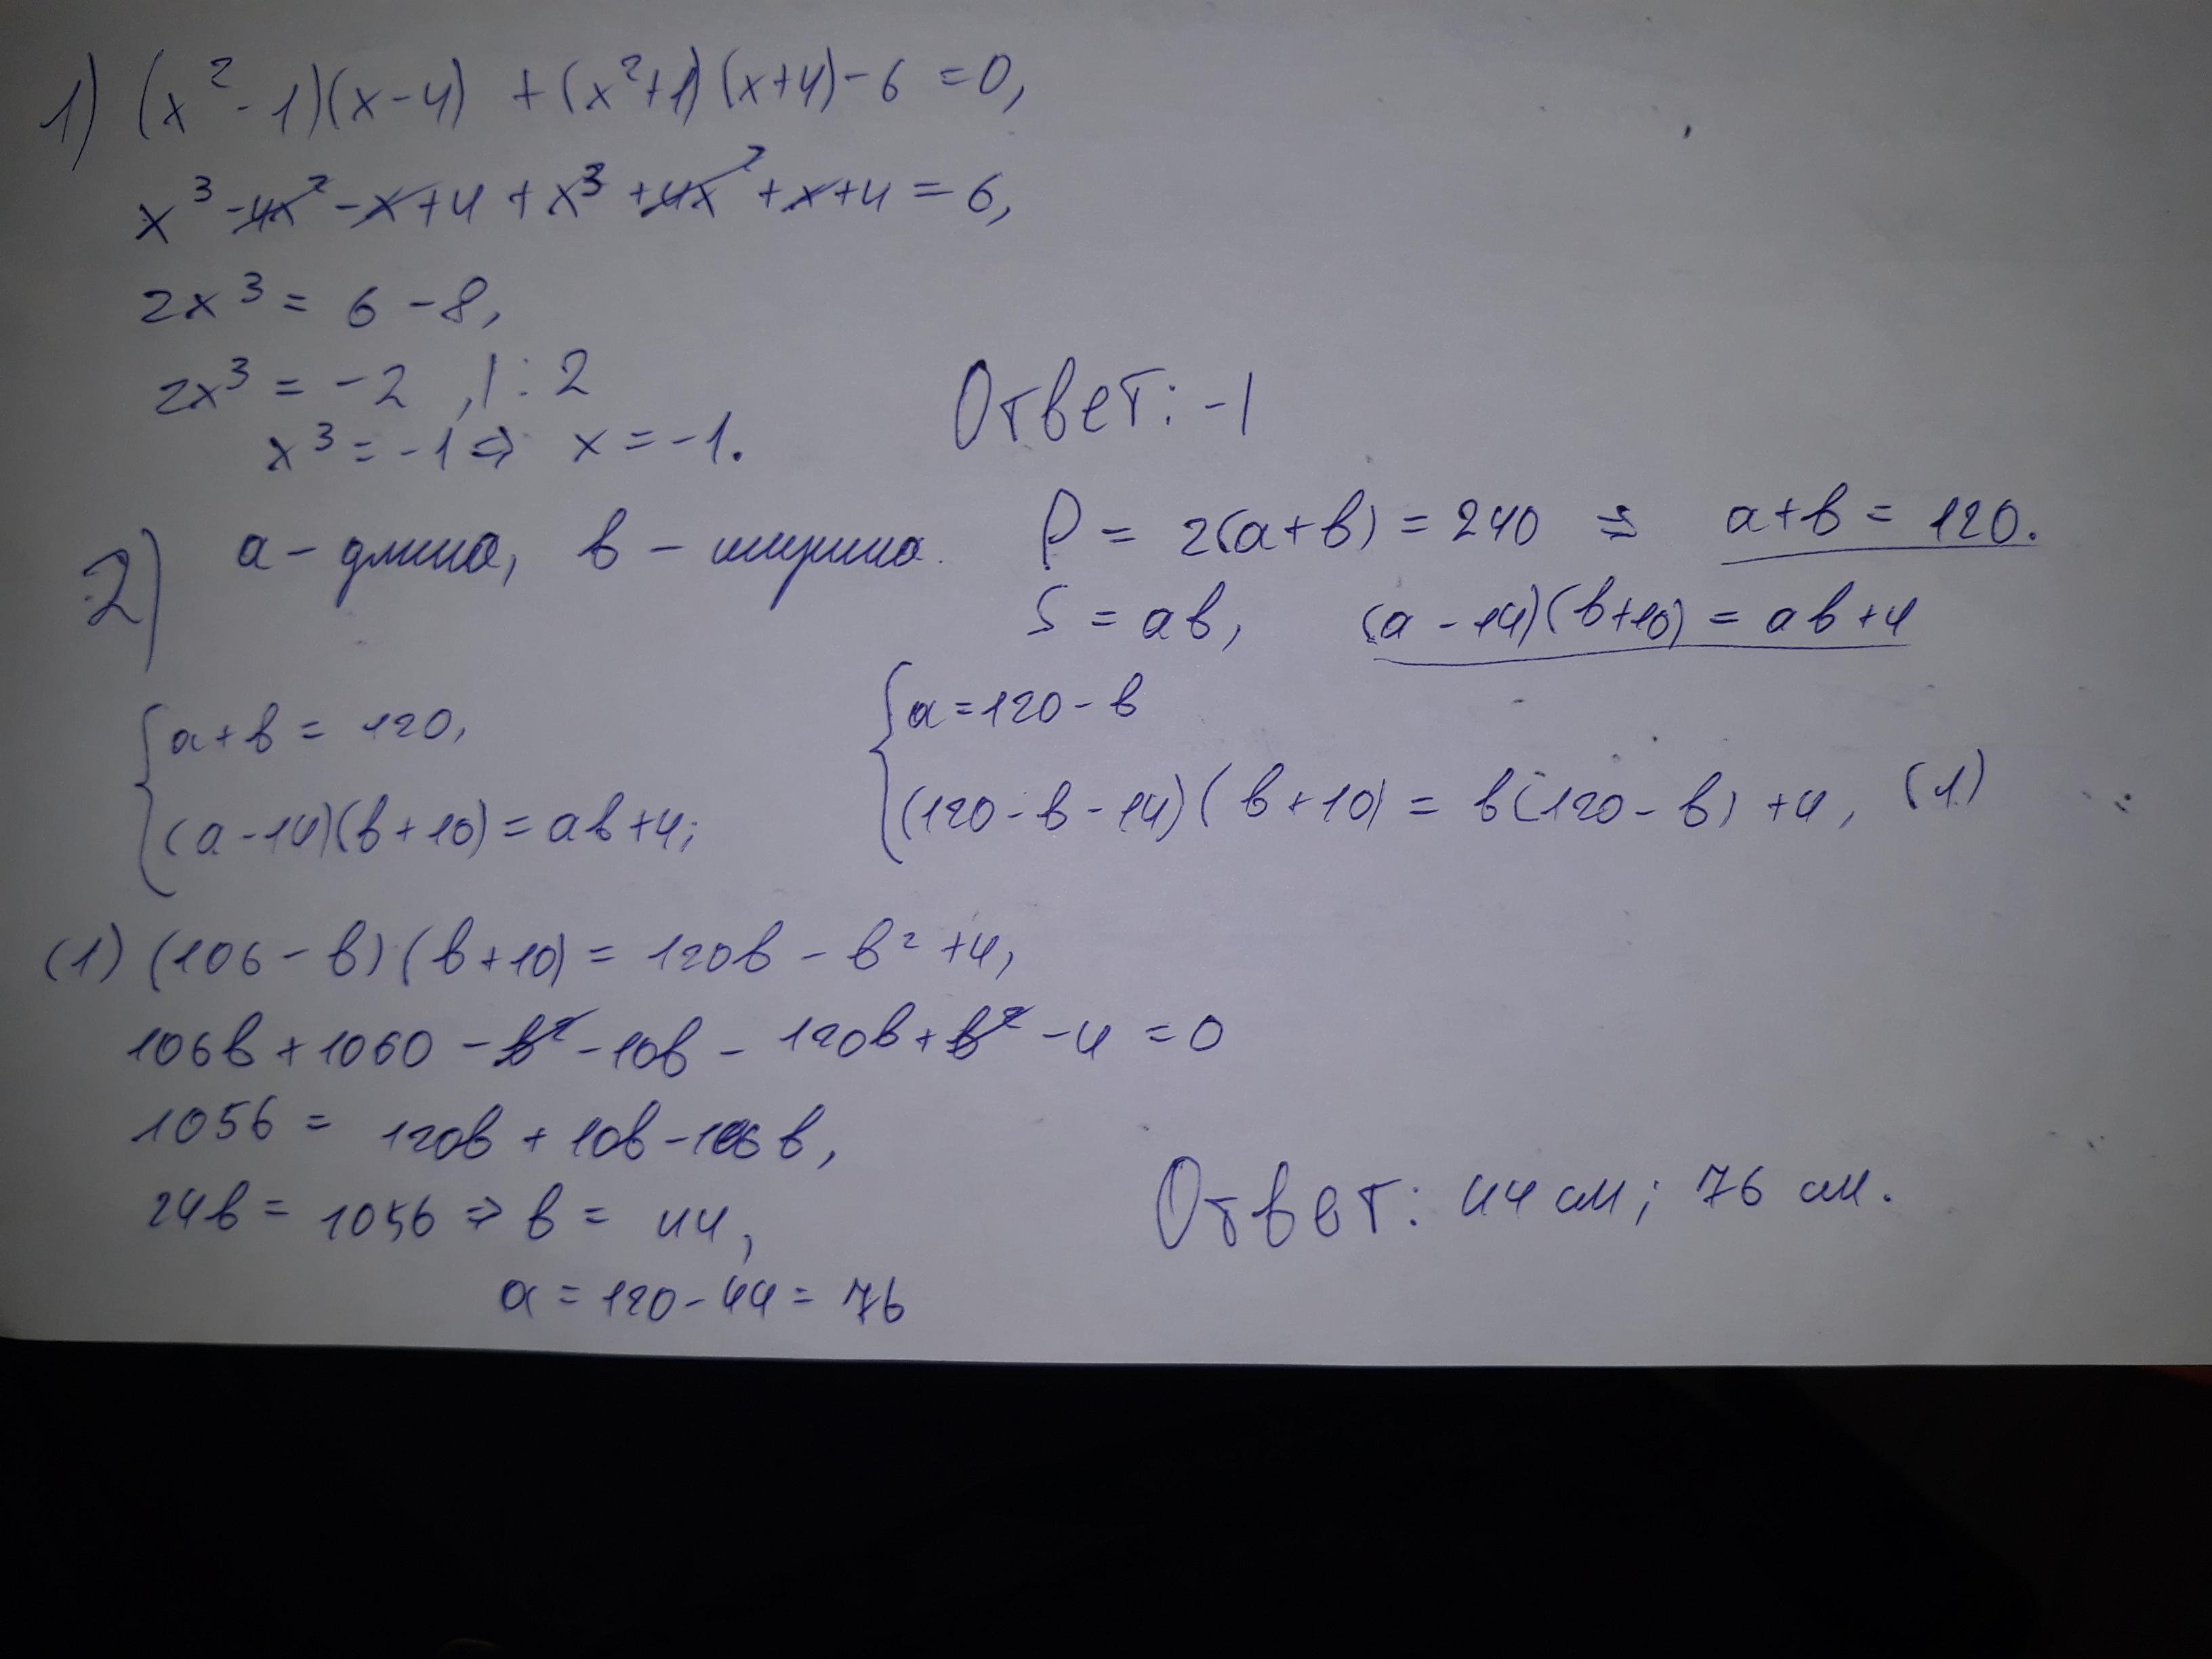 1) (x² - 1)(x - 4) + (x² + 1)(x + 4) - 6 = 0,
x³ - 4x² - x + 4 + x³ + 4x² + x + 4 = 6,
2x³ = 6 - 8,
2x³ = -2, |: 2
x³ = -1 => x = -1.
Ответ: -1
2) a - длина, b - ширина. P = 2(a+b) = 240 => a+b = 120.
S = ab, (a - 14)(b+10) = ab + 4
{ a+b = 120,
(a - 14)(b + 10) = ab + 4;
{ a = 120 - b
(120 - b - 14)(b + 10) = b(120 - b) + 4, (1)
(1) (106 - b)(b + 10) = 120b - b² + 4,
106b + 1060 - b² - 10b - 120b + b² - 4 = 0
1056 = 120b + 10b - 106b,
24b = 1056 => b = 44,
a = 120 - 44 = 76
Ответ: 44 см; 76 см.